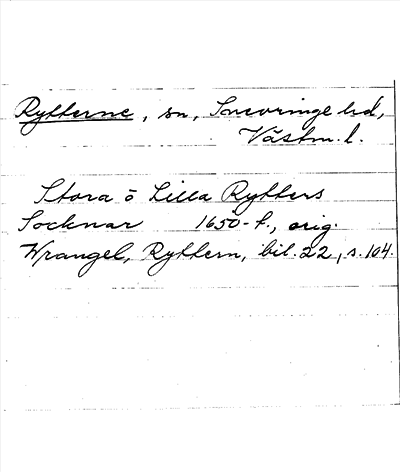 Rytterne, sn, Snevringe hd,
Västm. l.
Stora o Lilla Rytters
Socknar 1650-t., orig.
Wrangel, Ryttern, bil. 22, s. 104.